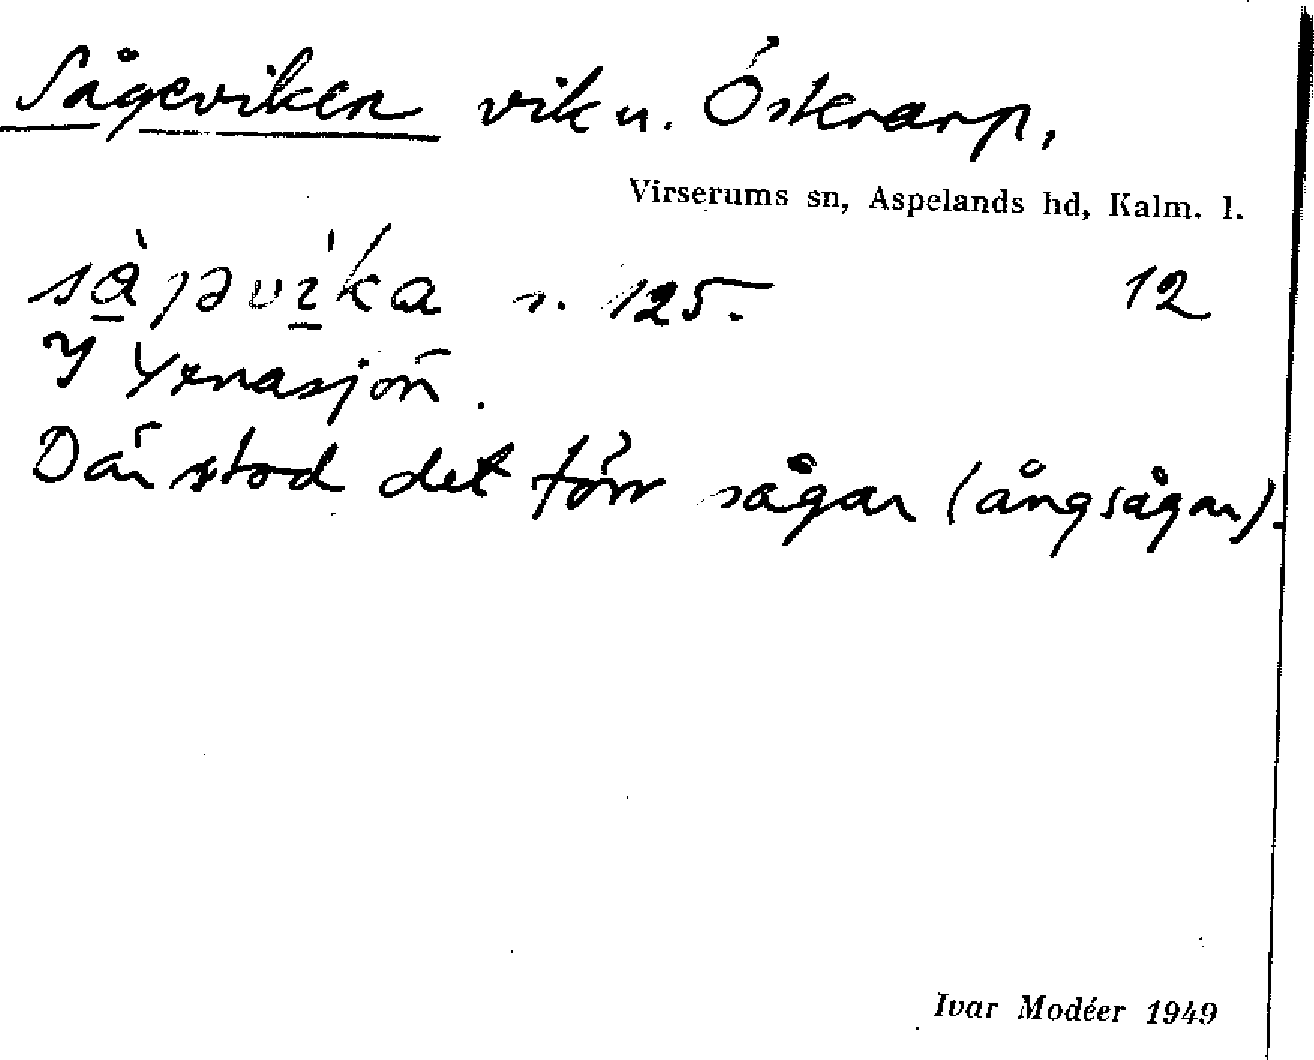 Sågeviken vik u. Österarp,
Virserums sn, Aspelands hd, Kalm. l.
s. 125. 12
Y Yxnasjön.
Där stod det förr sågar (ångsågar).
Ivar Modéer 1949